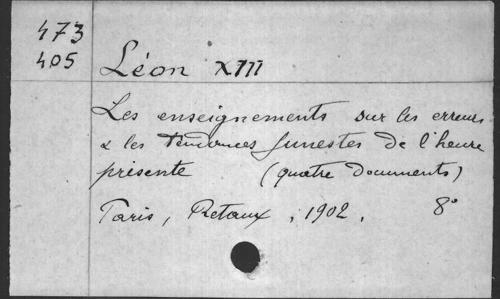 473
405
Léon XIII
Les enseignements sur les erreurs
& les tendances funestes de l'heure
présente (quatre documents)
Paris, Retaux, 1902, 8°